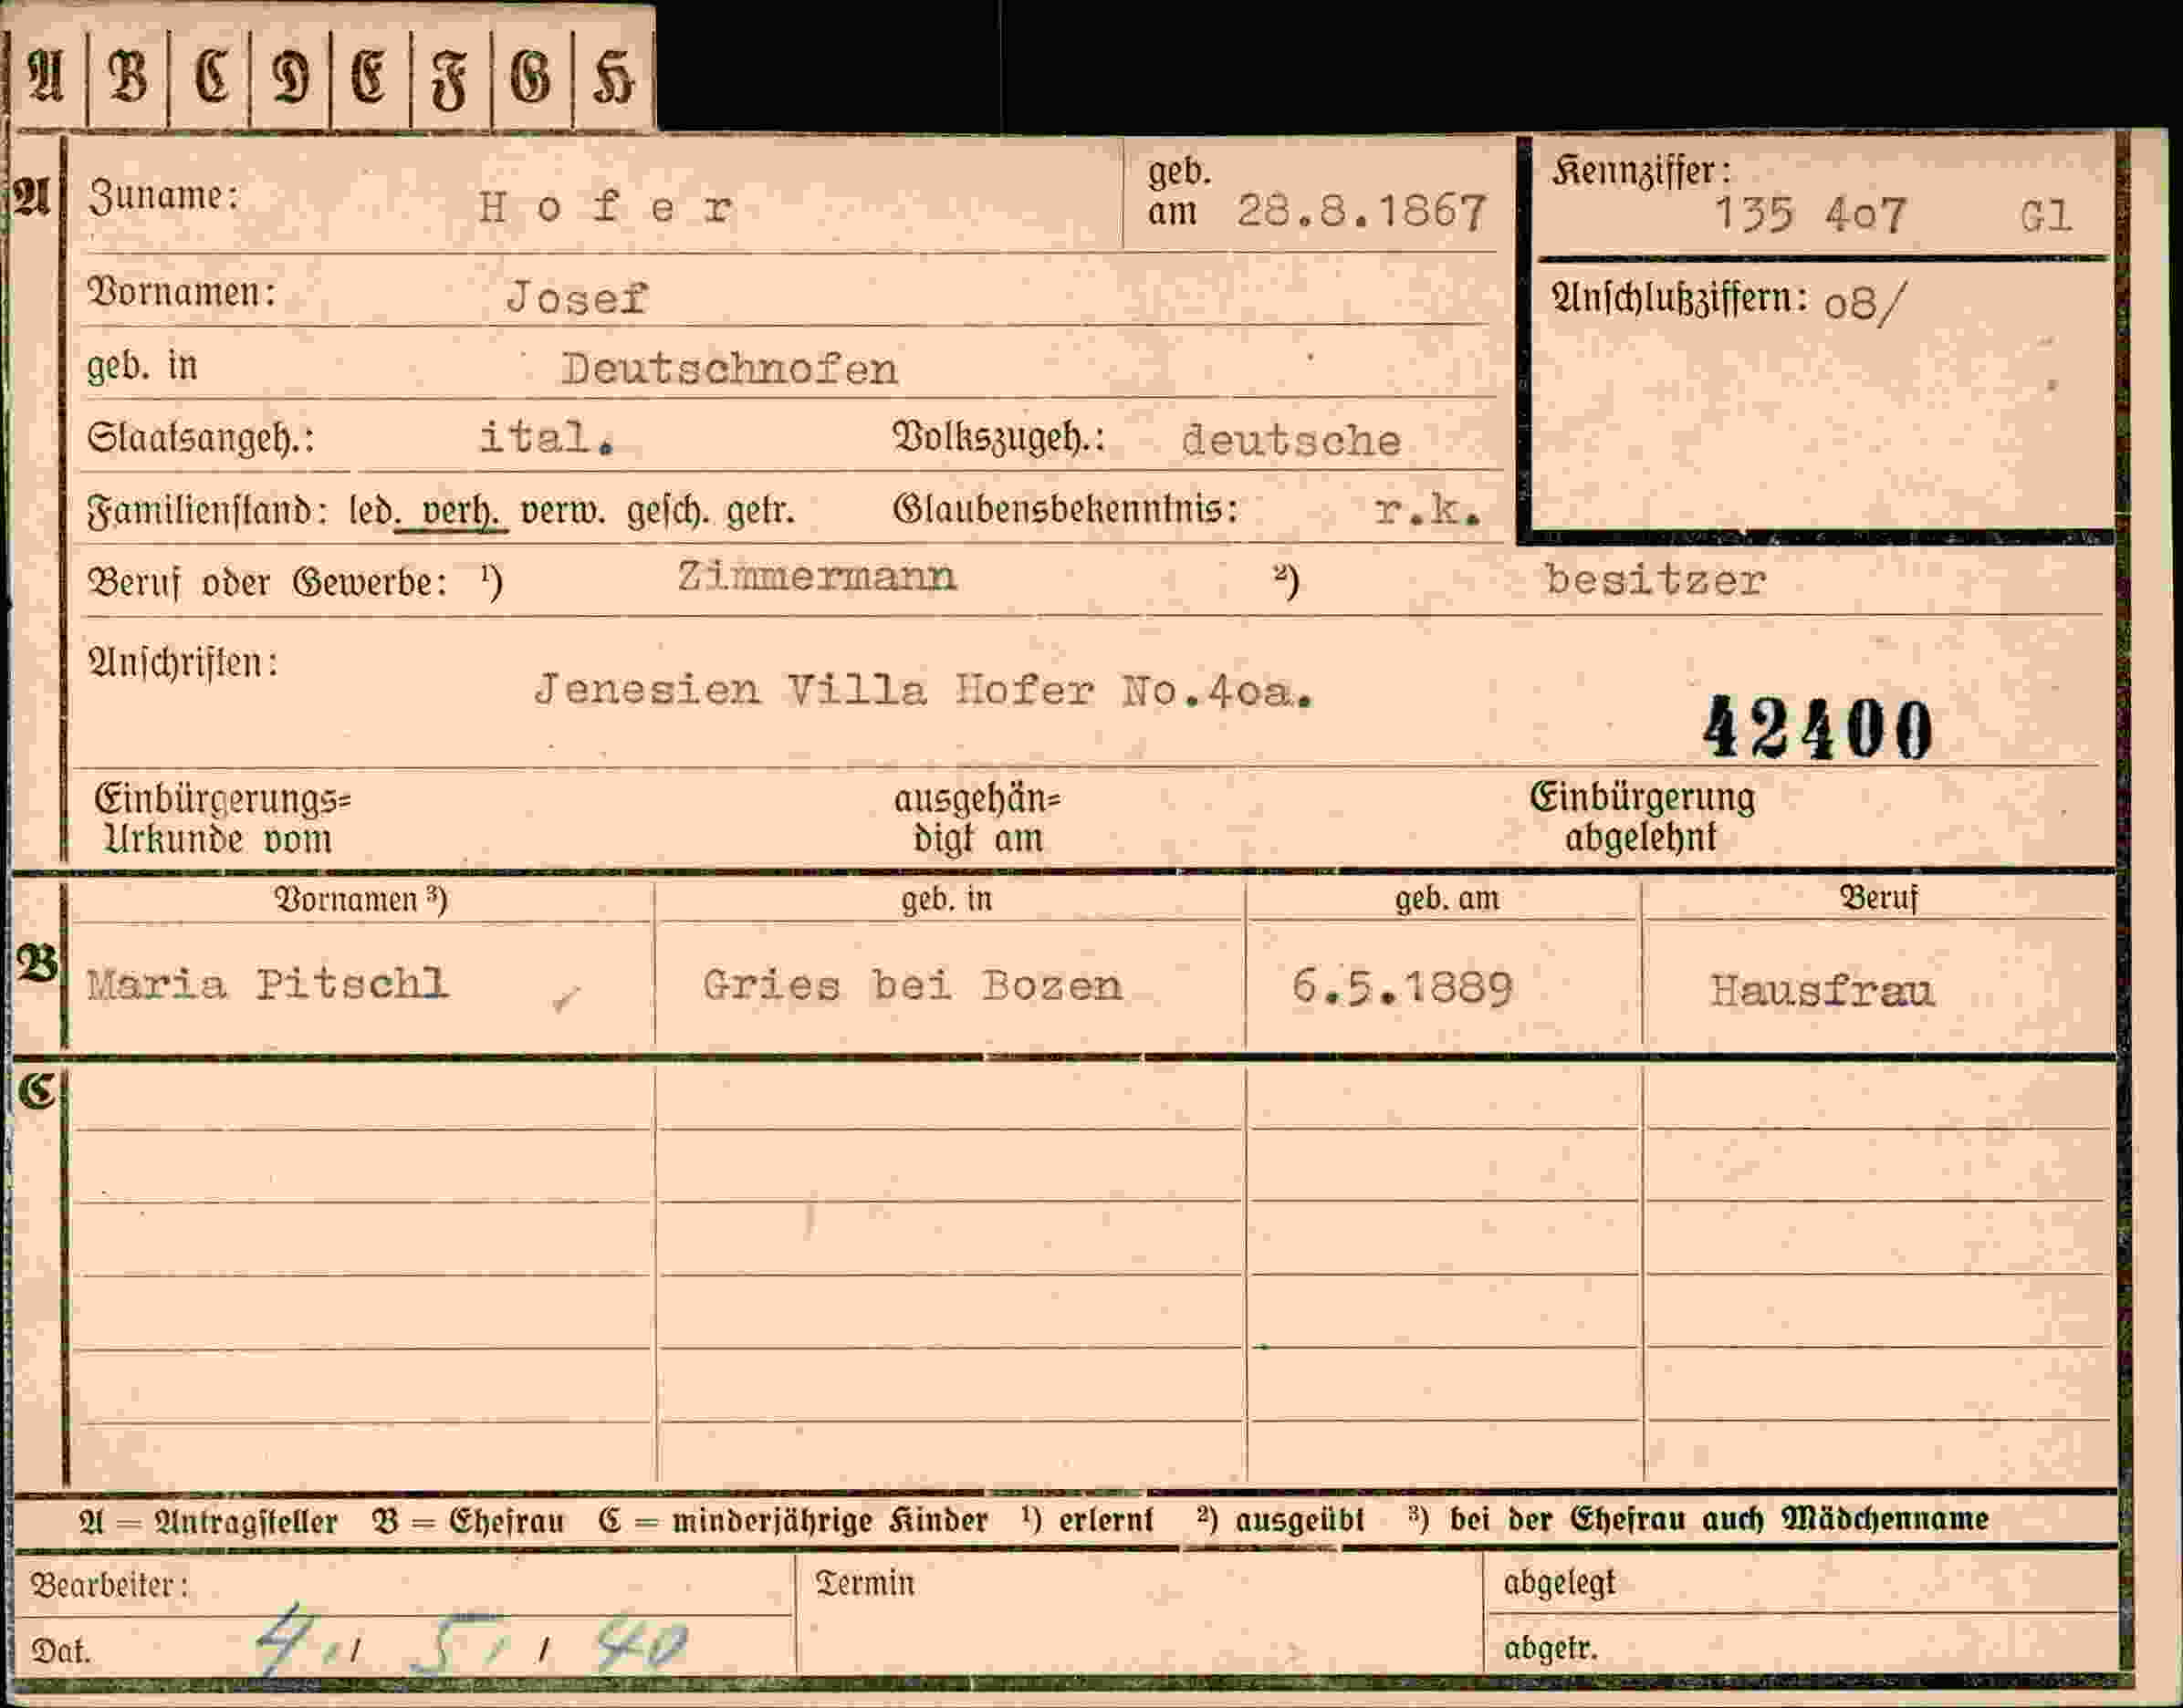 A B C D E F G H
A Zuname: Hofer geb. am 28.8.1867 Kennziffer: 135 4o7 Gl
Vornamen: Josef Anschlußziffern: o8/
geb. in Deutschnofen
Staatsangeh.: ital. Volkszugeh.: deutsche
Familienstand: led. verh. verw. gesch. getr. Glaubensbekenntnis: r.k.
Beruf oder Gewerbe: ¹) Zimmermann ²) besitzer
Anschriften: Jenesien Villa Hofer No.4oa.
42400
Einbürgerungs= ausgehän= Einbürgerung
Urkunde vom digt am abgelehnt
Vornamen ³) geb. in geb. am Beruf
B Maria Pitschl Gries bei Bozen 6.5.1889 Hausfrau
C
A = Antragsteller B = Ehefrau C = minderjährige Kinder ¹) erlernt ²) ausgeübt ³) bei der Ehefrau auch Mädchenname
Bearbeiter: Termin abgelegt
Dat. 4./ 5./ 40 abgetr.